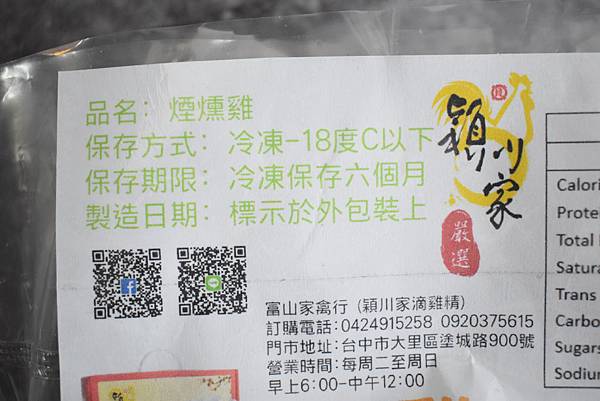 品名：煙燻雞
保存方式：冷凍-18度C以下
保存期限：冷凍保存六個月
製造日期：標示於外包裝上
潁川家
嚴選
富山家禽行（潁川家滴雞精）
訂購電話:0424915258 0920375615
門市地址:台中市大里區塗城路900號
營業時間:每周二至周日
早上6:00-中午12:00
Calori
Protei
Total
Satura
Trans
Carbo
Sugars
Sodiun